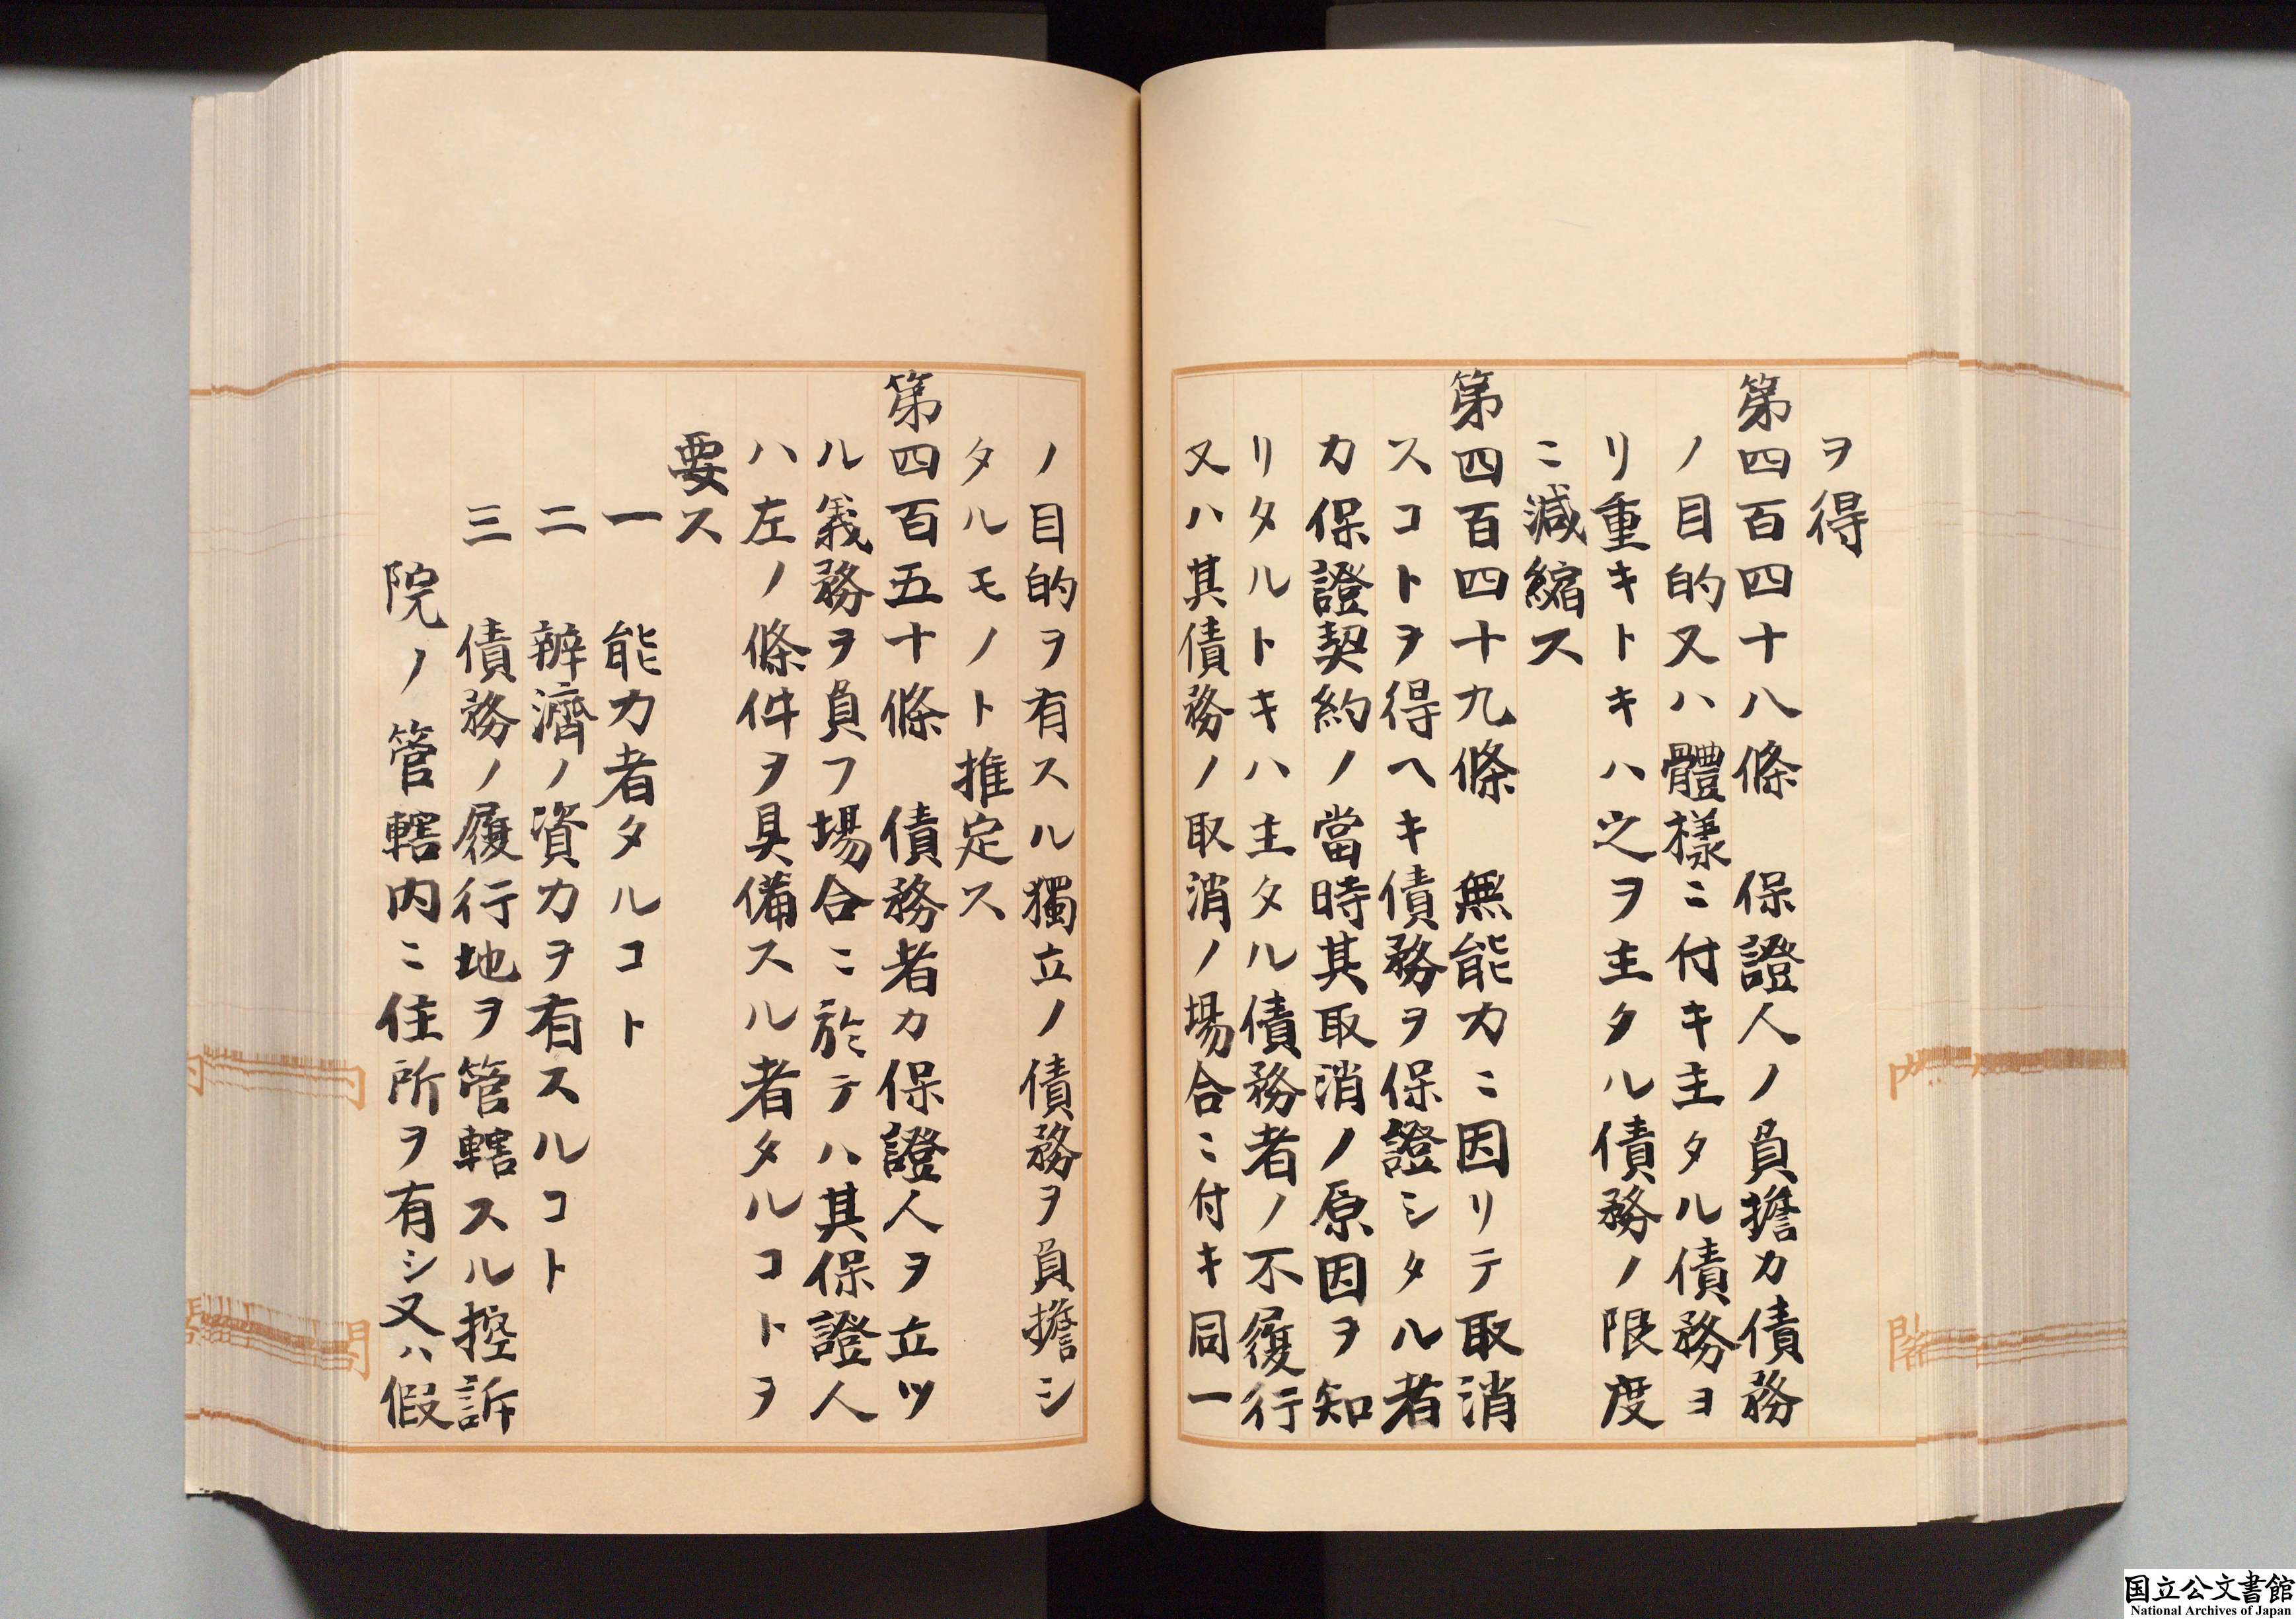 ヲ得
第四百四十八條　保證人ノ負擔カ債務
ノ目的又ハ體樣ニ付キ主タル債務ヨ
リ重キトキハ之ヲ主タル債務ノ限度
ニ減縮ス
第四百四十九條　無能力ニ因リテ取消
スコトヲ得ヘキ債務ヲ保證シタル者
カ保證契約ノ當時其取消ノ原因ヲ知
リタルトキハ主タル債務者ノ不履行
又ハ其債務ノ取消ノ場合ニ付キ同一
ノ目的ヲ有スル獨立ノ債務ヲ負擔シ
タルモノト推定ス
第四百五十條　債務者カ保證人ヲ立ツ
ル義務ヲ負フ場合ニ於テハ其保證人
ハ左ノ條件ヲ具備スル者タルコトヲ
要ス
一　能力者タルコト
二　辨濟ノ資力ヲ有スルコト
三　債務ノ履行地ヲ管轄スル控訴
院ノ管轄内ニ住所ヲ有シ又ハ假
内
閣
国立公文書館
National Archives of Japan